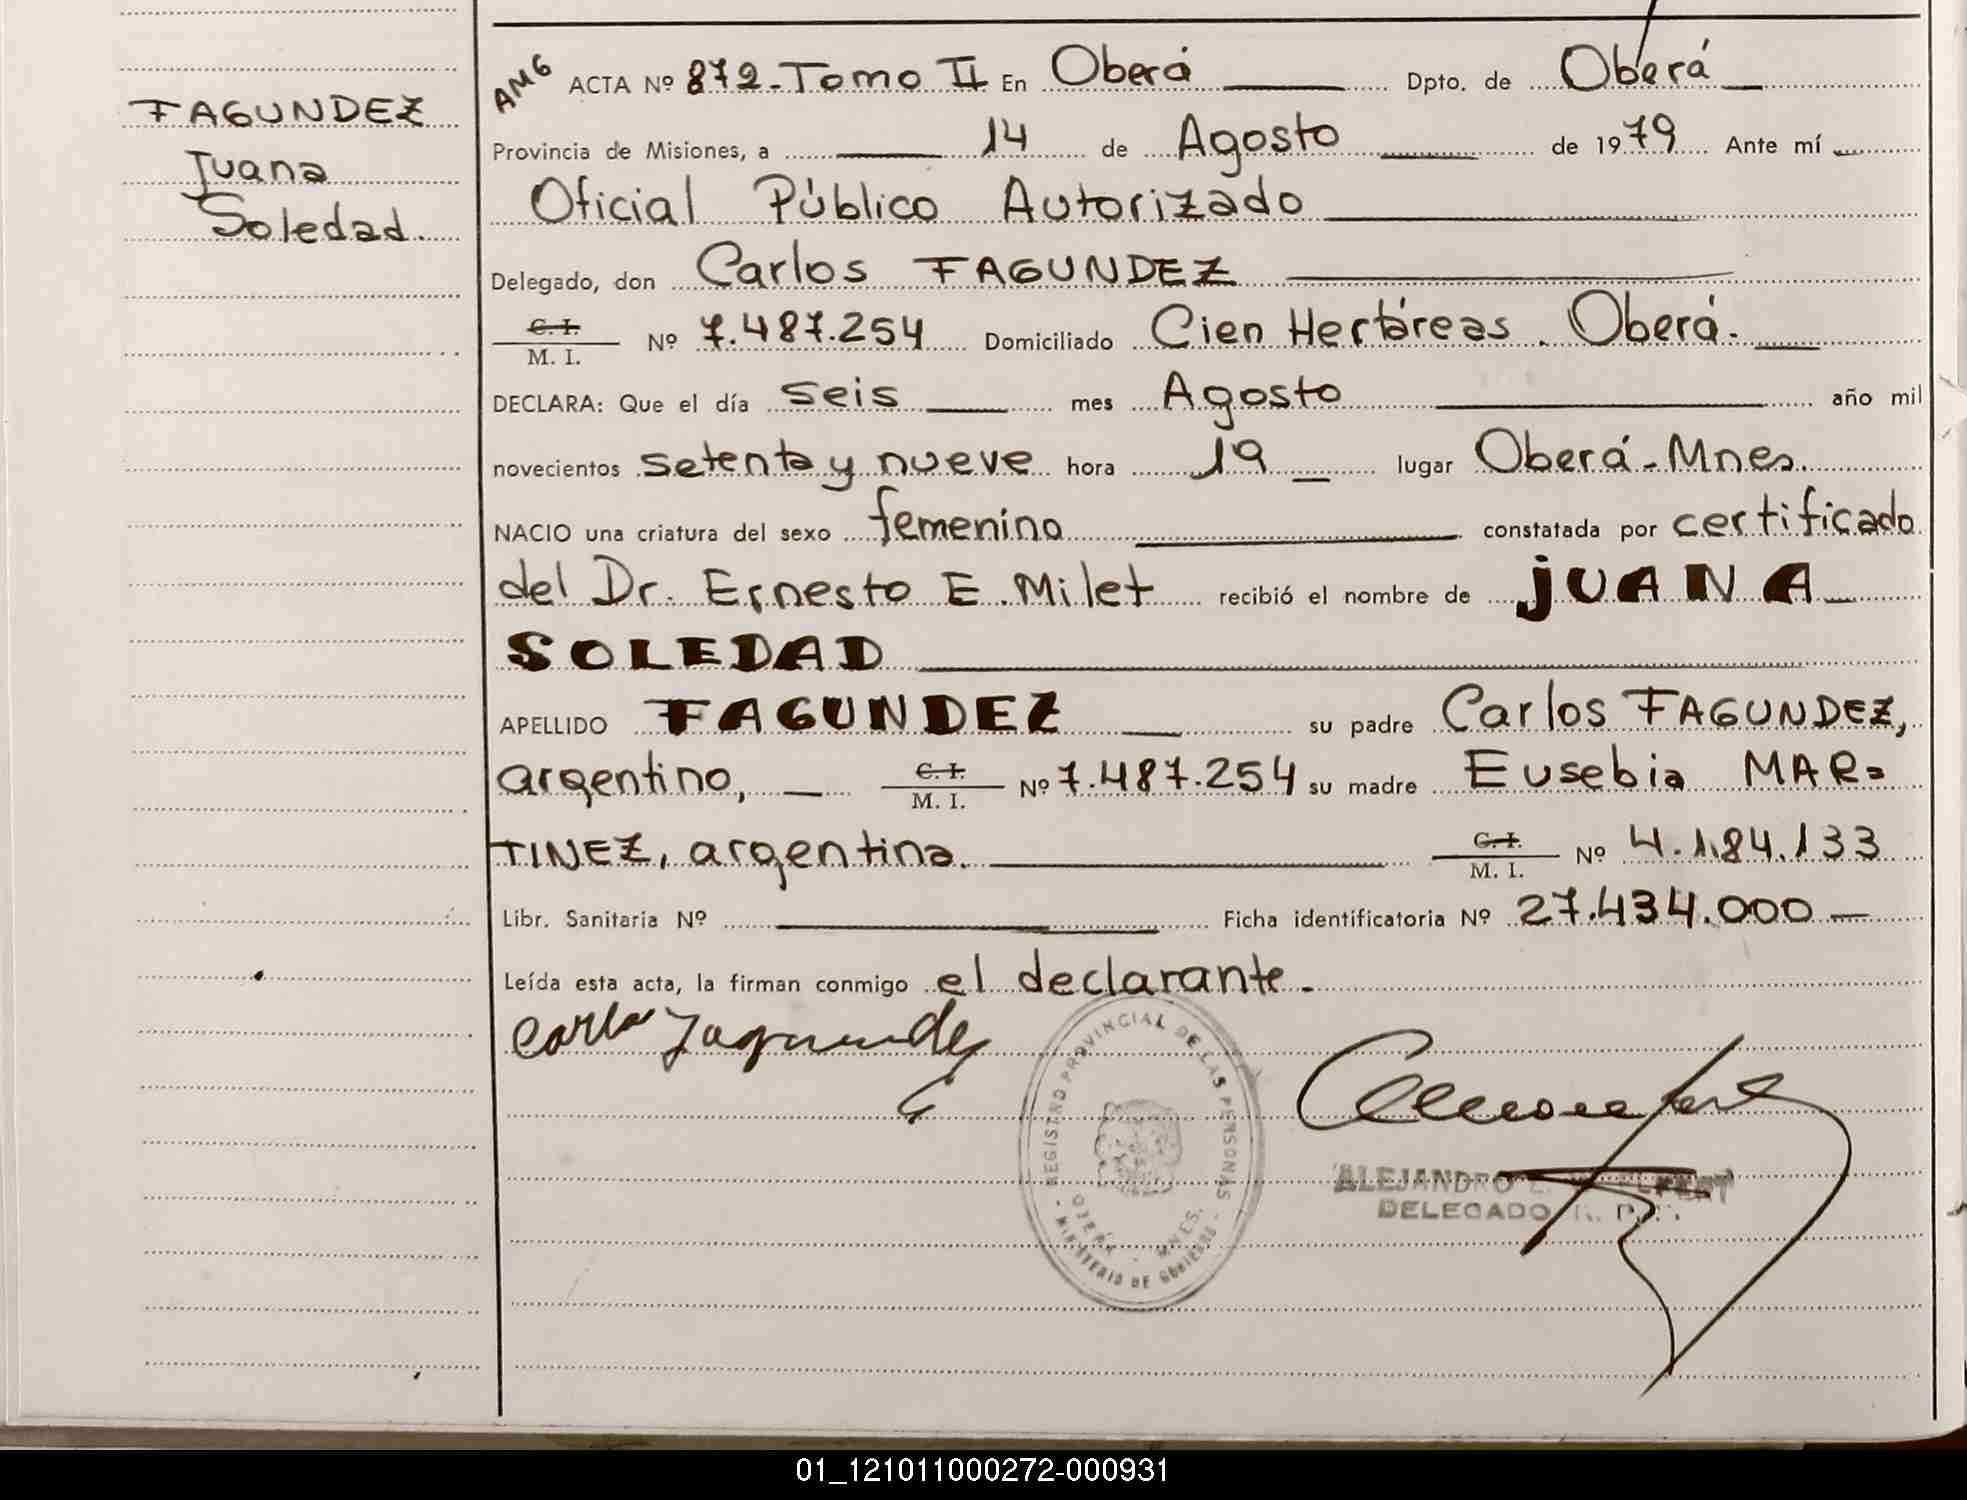 FAGUNDEZ
Juana
Soledad.
AMG ACTA Nº 872-Tomo II En Oberá Dpto. de Oberá
Provincia de Misiones, a 14 de Agosto de 1979 Ante mí
Oficial Público Autorizado
Delegado, don Carlos FAGUNDEZ
C. I. / M. I. Nº 7.487.254 Domiciliado Cien Hectáreas. Oberá.
DECLARA: Que el día seis mes Agosto año mil
novecientos setenta y nueve hora 19 lugar Oberá-Mnes.
NACIO una criatura del sexo femenino constatada por certificado
del Dr. Ernesto E. Milet recibió el nombre de JUANA
SOLEDAD
APELLIDO FAGUNDEZ su padre Carlos FAGUNDEZ,
argentino, C. I. / M. I. Nº 7.487.254 su madre Eusebia MAR=
TINEZ, argentina. C. I. / M. I. Nº 4.184.133
Libr. Sanitaria Nº Ficha identificatoria Nº 27.434.000
Leída esta acta, la firman conmigo el declarante.
Carlos Fagundez
REGISTRO PROVINCIAL DE LAS PERSONAS
OBERÁ - MNES.
MINISTERIO DE GOBIERNO
ALEJANDRO
DELEGADO R. P.
01_121011000272-000931